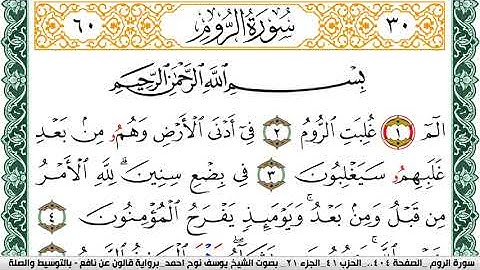 ٣٠ سُورَةُ الرُّومِ ٦٠
بِسْمِ اللَّهِ الرَّحْمَٰنِ الرَّحِيمِ
الٓمٓ ١ غُلِبَتِ الرُّومُ ٢ فِےٓ أَدْنَى الْأَرْضِ وَهُمُۥ مِنۢ بَعْدِ
غَلَبِهِمُۥ سَيَغْلِبُونَ ٣ فِے بِضْعِ سِنِينَۖ لِلَّهِ الْأَمْرُ
مِن قَبْلُ وَمِنۢ بَعْدُۖ وَيَوْمَئِذٍ يَفْرَحُ الْمُؤْمِنُونَ ٤
سورة الروم_ الصفحة ٤٠٤_ الحزب ٤١_الجزء ٢١_ بصوت الشيخ يوسف نوح احمد_برواية قالون عن نافع - بالتوسيط والصلة